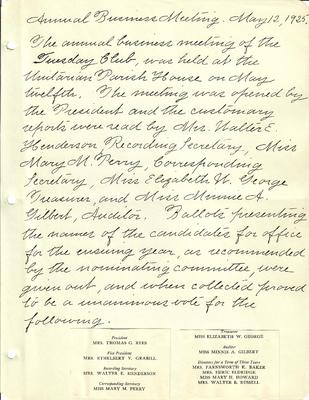 Annual Business Meeting. May 12, 1925.
The annual business meeting of the
Tuesday Club, was held at the
Unitarian Parish House on May
twelfth. The meeting was opened by
the President and the customary
reports were read by Mrs. Walter E.
Henderson Recording Secretary, Miss
Mary M. Perry, Corresponding
Secretary, Miss Elizabeth W. George
Treasurer, and Miss Minnie A.
Gilbert, Auditor. Ballots presenting
the names of the candidates for office
for the ensuing year, as recommended
by the nominating committee, were
given out, and when collected proved
to be a unanimous vote for the
following.
President
MRS. THOMAS G. REES
Vice President
MRS. ETHELBERT V. GRABILL
Recording Secretary
MRS. WALTER E. HENDERSON
Corresponding Secretary
MISS MARY M. PERRY
Treasurer
MISS ELIZABETH W. GEORGE
Auditor
MISS MINNIE A. GILBERT
Directors for a Term of Three Years
MRS. FARNSWORTH K. BAKER
MRS. HERIC ELDRIDGE
MISS MARY H. HOWARD
MRS. WALTER B. RUSSELL